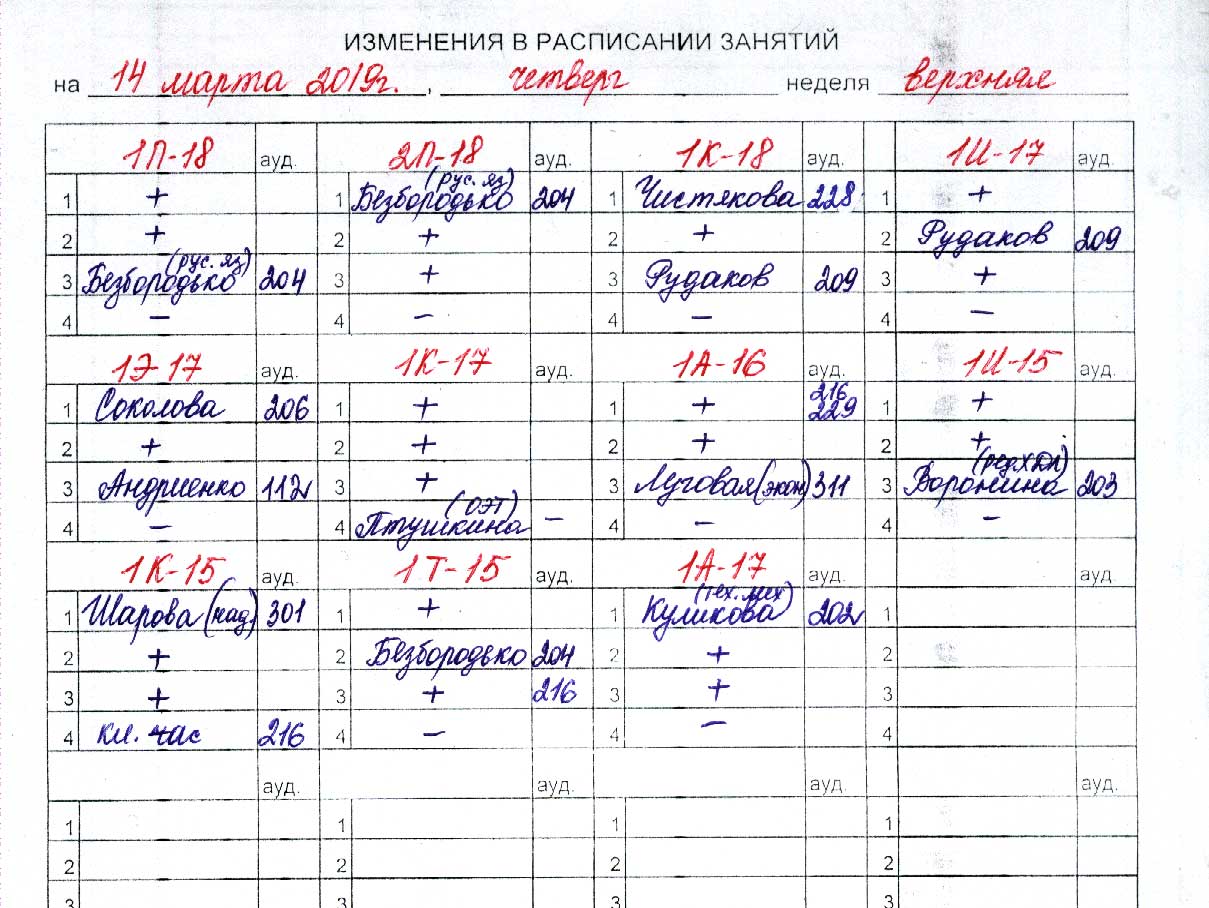 ИЗМЕНЕНИЯ В РАСПИСАНИИ ЗАНЯТИЙ
на 14 марта 2019г. , четверг неделя верхняя
1П-18 ауд. 2П-18 ауд. 1К-18 ауд. 1И-17 ауд.
1 + 1 Безбородько (рус. яз) 204 1 Чистякова 228 1 +
2 + 2 + 2 + 2 Рудаков 209
3 Безбородько (рус. яз) 204 3 + 3 Рудаков 209 3 +
4 – 4 – 4 – 4 –
1Э-17 ауд. 1К-17 ауд. 1А-16 ауд. 1И-15 ауд.
1 Соколова 206 1 + 1 + 216 229 1 +
2 + 2 + 2 + 2 +
3 Андриенко 112 3 + 3 Луговая (экон) 311 3 Воронина 203
4 – 4 Птушкина (ОЭТ) – 4 – 4 –
1К-15 ауд. 1Т-15 ауд. 1А-17 ауд. ауд.
1 Шарова (над) 301 1 + 1 Куликова (тех. мех) 202 1
2 + 2 Безбородько 204 2 + 2
3 + 3 + 216 3 + 3
4 кл. час 216 4 – 4 – 4
ауд. ауд. ауд. ауд.
1 1 1 1
2 2 2 2
3 3 3 3